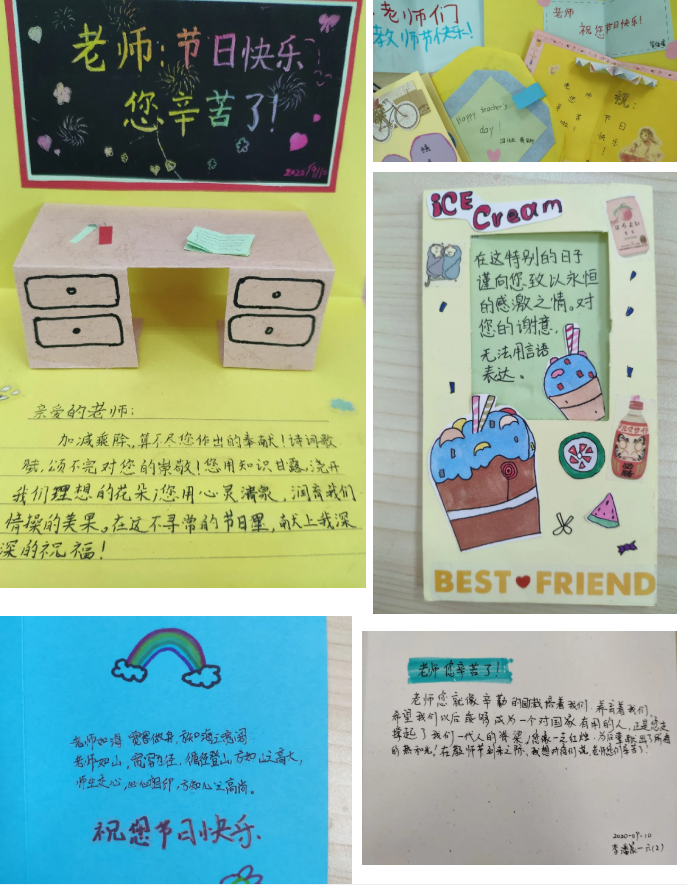 老师:节日快乐
您辛苦了!
2022/9/10
亲爱的老师:
加减乘除,算不尽您作出的奉献!诗词歌
赋,颂不完对您的崇敬!您用知识甘露,浇开
我们理想的花朵;您用心灵清泉,润育我们
情操的美果。在这不寻常的节日里,献上我深
深的祝福!
老师们
教师节快乐!
老师
祝您节日快乐!
Happy teacher's
day!
祝:
节
日
快
乐!
iCE
Cream
在这特别的日子
谨向您致以永恒
的感激之情。对
您的谢意,
无法用言语
表达。
BEST FRIEND
老师如海,宽容做舟,
老师如山,
师生交心,心心相印,方知心之高尚。
祝您节日快乐.
老师您辛苦了!
老师您就像辛勤的园 培着我们,养育着我们,
希望我们以后能够成为一个对国家有用的人,还是您走
撑起了我们一代人的脊梁,您像一支红烛,为后辈献出了所有
的热和光!在教师节到来之际,我想对您们说,老师您们辛苦了!
2020-09-10